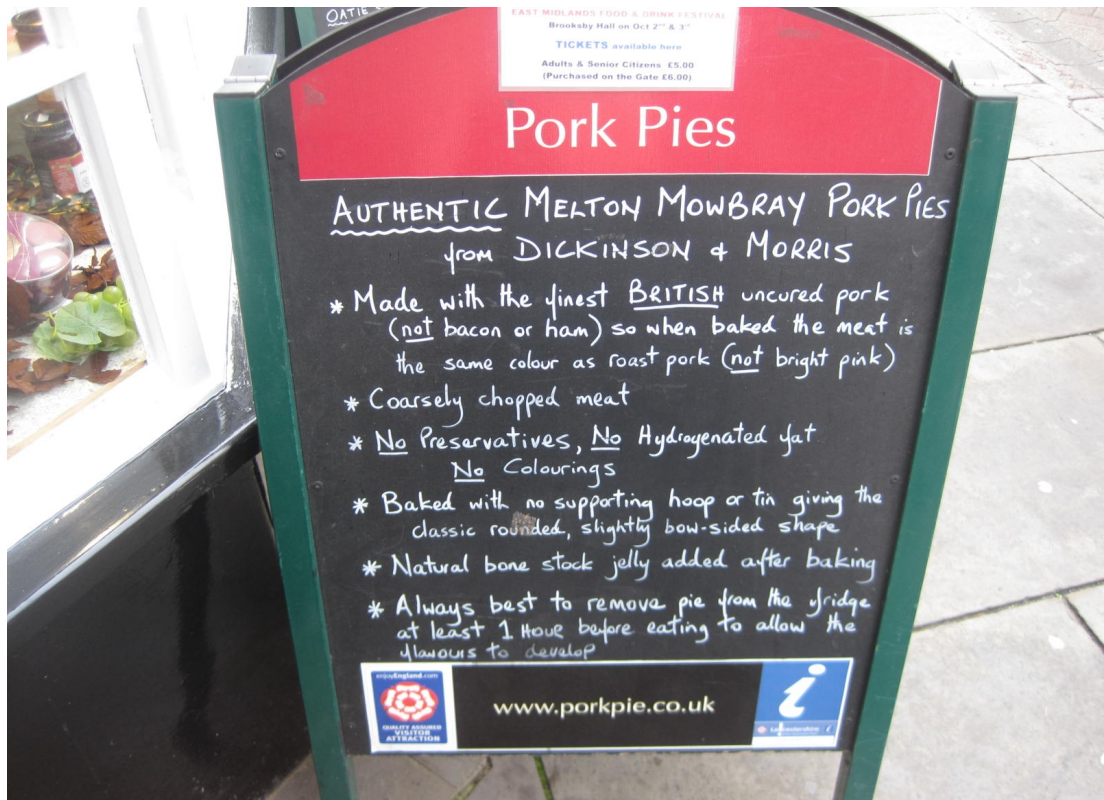 OATIE
EAST MIDLANDS FOOD & DRINK FESTIVAL
Brooksby Hall on Oct 2nd & 3rd
TICKETS available here
Adults & Senior Citizens £5.00
(Purchased on the Gate £6.00)
Pork Pies
AUTHENTIC MELTON MOWBRAY PORK PIES
from DICKINSON & MORRIS
* Made with the finest BRITISH uncured pork
(not bacon or ham) so when baked the meat is
the same colour as roast pork (not bright pink)
* Coarsely chopped meat
* No Preservatives, No Hydrogenated fat
No Colourings
* Baked with no supporting hoop or tin giving the
classic rounded, slightly bow-sided shape
* Natural bone stock jelly added after baking
* Always best to remove pie from the fridge
at least 1 HOUR before eating to allow the
flavours to develop
enjoyEngland.com
QUALITY ASSURED
VISITOR
ATTRACTION
www.porkpie.co.uk
i
Leicestershire i